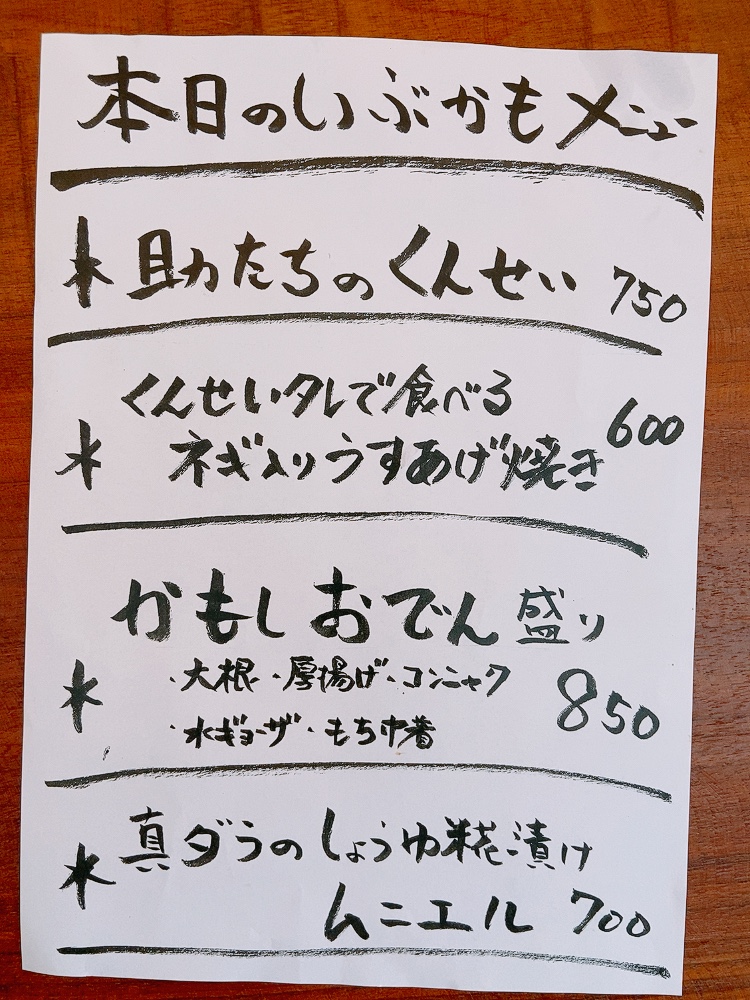 本日のいぶかもメニュー
* 助たちのくんせい 750
くんせいタレで食べる
* ネギ入りうすあげ焼き 600
かもしおでん盛り
・大根・厚揚げ・コンニャク
* ・水ギョーザ・もち巾着 850
真ダラのしょうゆ糀漬け
* ムニエル 700